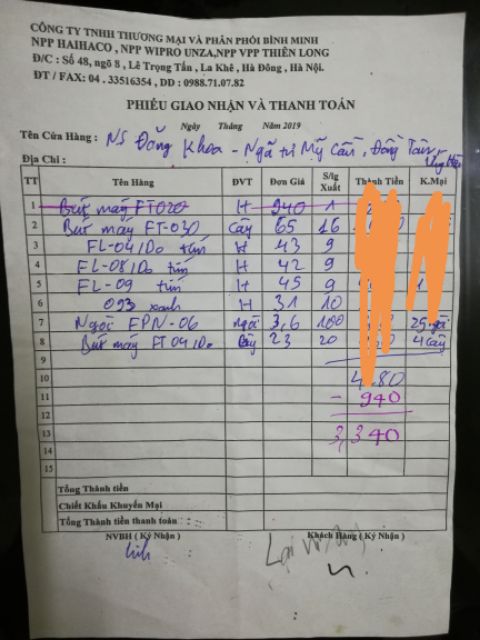 CÔNG TY TNHH THƯƠNG MẠI VÀ PHÂN PHỐI BÌNH MINH
NPP HAIHACO , NPP WIPRO UNZA,NPP VPP THIÊN LONG
Đ/C : Số 48, ngõ 8 , Lê Trọng Tấn , La Khê , Hà Đông , Hà Nội.
ĐT / FAX: 04 . 33516354 , DD : 0988.71.07.82
PHIẾU GIAO NHẬN VÀ THANH TOÁN
Ngày Tháng Năm 2019
Tên Cửa Hàng : NS Đăng Khoa - Ngã tư
Địa Chỉ :
TT Tên Hàng ĐVT Đơn Giá S/lg Xuất Thành Tiền K.Mại
1 Bút máy FT020 H 940 1
2 Bút máy FT-030 cây 65 16
3 FL-04/Do tím H 43 9
4 FL-08/Do tím H 42 9
5 FL-09 tím H 45 9
6 093 xanh H 31 10
7 Ngòi FPN-06 ngòi 3,6 100 25 ngòi
8 Bút máy FT04/Do Cây 23 20 4 cây
9
10 4280
11 - 940
12
13 3,340
14
15
Tổng Thành tiền
Chiết Khấu Khuyến Mại
Tổng Thành tiền thanh toán
NVBH ( Ký Nhận ) Khách Hàng ( Ký Nhận )
linh